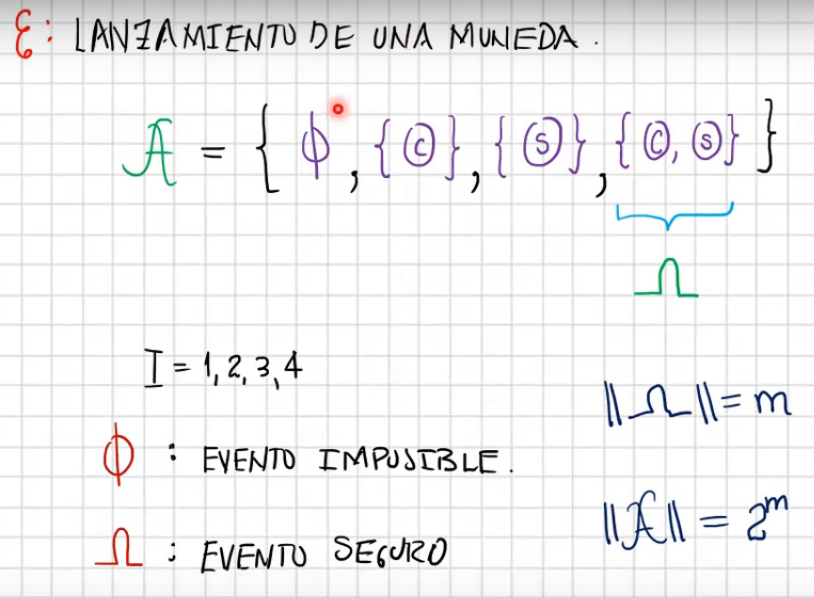 ℰ: LANZAMIENTO DE UNA MONEDA.
𝒜 = { ϕ, {Ⓒ}, {Ⓢ}, {Ⓒ, Ⓢ} }
Ω
I = 1, 2, 3, 4
‖Ω‖ = m
ϕ : EVENTO IMPOSIBLE.
‖𝒜‖ = 2^m
Ω : EVENTO SEGURO